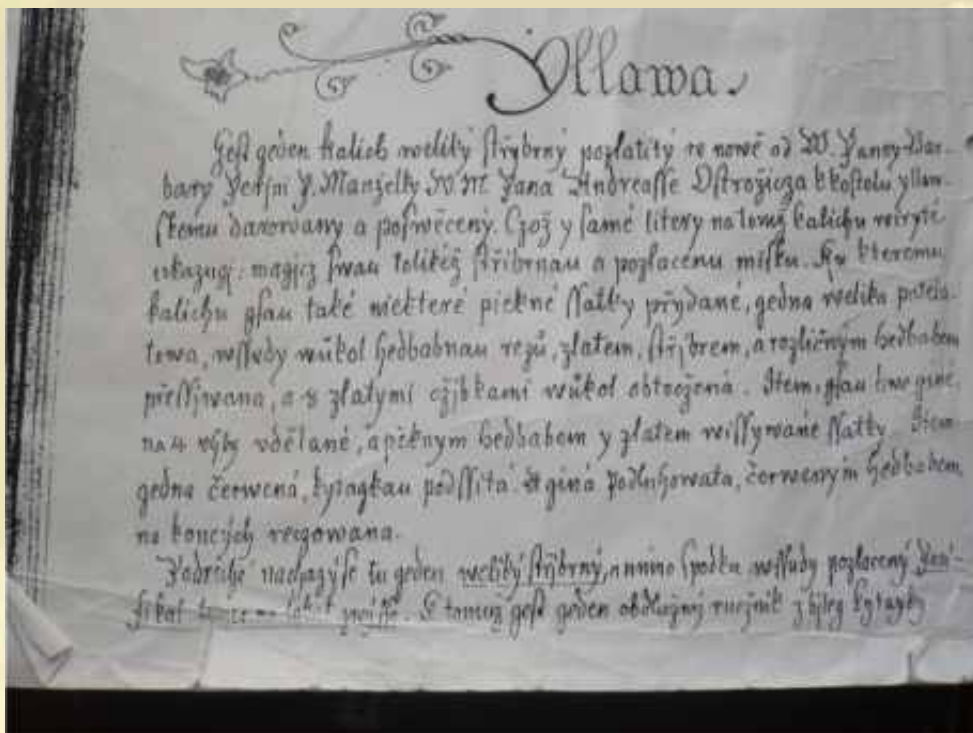 Yllawa
Gest geden kalich weliký stŕybrný pozlatitý w nowě od W. Panny Bar-
bary Y. Manželky W. M. Pana Andreasse Ostrožicza k kostolu yllaw-
skemu darowany a poswěcený. Czož y samé litery na tomž kalichu wiryté
vkazugj: magjcz swau toliköž střibrnau a pozlacenu misku. Ku kteremu
kalichu gsau také niekteré piekné ssatky přydané, gedna welika
towa, wssudy wůkol hedbabnau, zlatem, střjbrem, a rozličným hedbabem
přessjwana, a s zlatymi cžjbkami wůkol obtočená. Item, gsau dwe giné,
na 4 vdělané, a pěknym hedbabem y zlatem wissywané ssatky. Item
gedna čerwená, kytagkau podssitá. A giná podluhowata, čerweným hedbabem,
na koncých
Podruhé nachazý se tu geden weliký střjbrný, a mimo spodku wssudy pozlacený
K tomuz gest geden obdlužný ručnik z bjleg kytayky